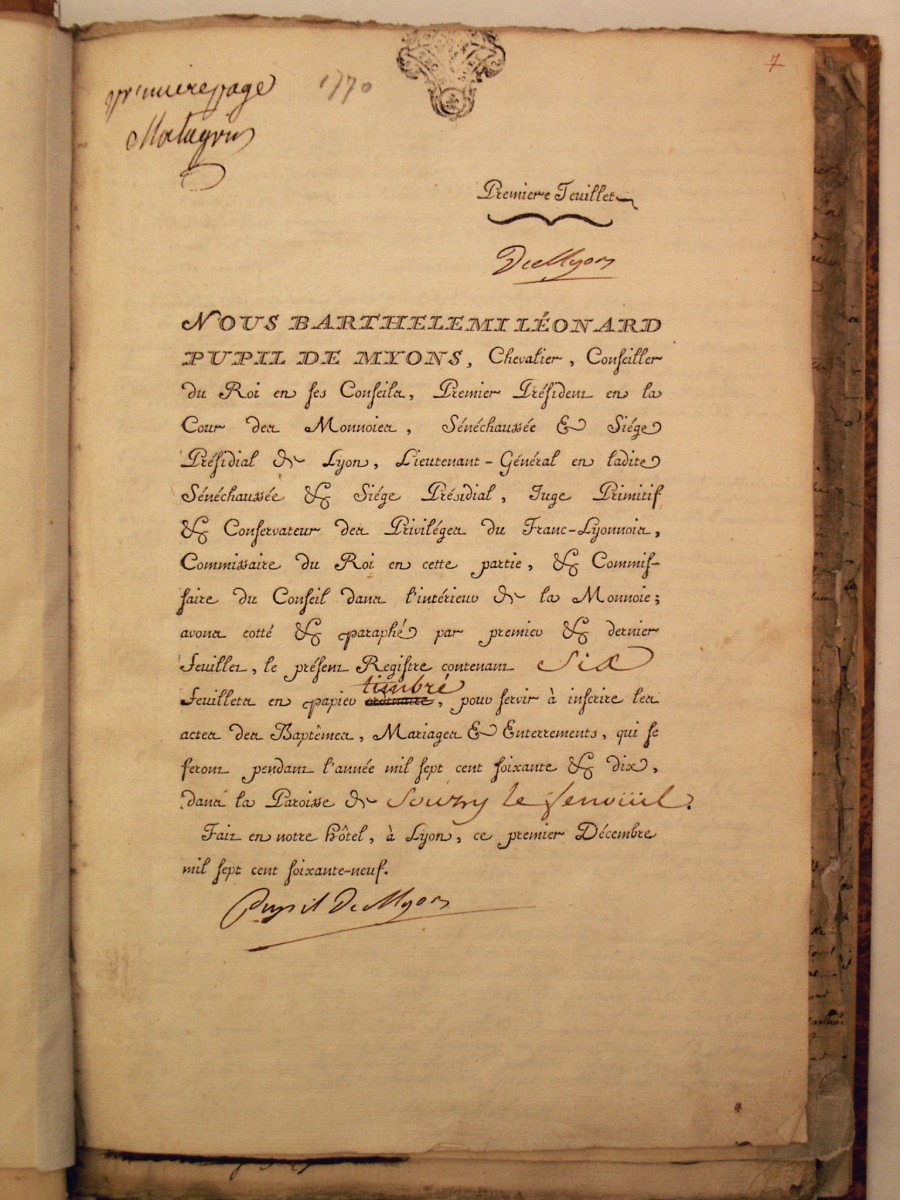 premiere page
1770
7
Matagrin
Premiere Feuillet
De Myons
NOUS BARTHELEMI LÉONARD
PUPIL DE MYONS, Chevalier, Conseiller
du Roi en ses Conseils, Premier Président en la
Cour des Monnoies, Sénéchaussée & Siége
Présidial de Lyon, Lieutenant-Général en ladite
Sénéchaussée & Siége Présidial, Juge Primitif
& Conservateur des Priviléges du Franc-Lyonnois,
Commissaire du Roi en cette partie, & Commis-
saire du Conseil dans l'intérieur de la Monnoie;
avons cotté & paraphé par premier & dernier
feuillet, le présent Registre contenant Six
timbré
feuillets en papier ordinaire, pour servir à inscrire les
actes des Baptêmes, Mariages & Enterrements, qui se
feront pendant l'année mil sept cent soixante & dix,
dans la Paroisse de Souzy le fenoüil.
Fait en notre hôtel, à Lyon, ce premier Décembre
mil sept cent soixante-neuf.
Pupil De Myons